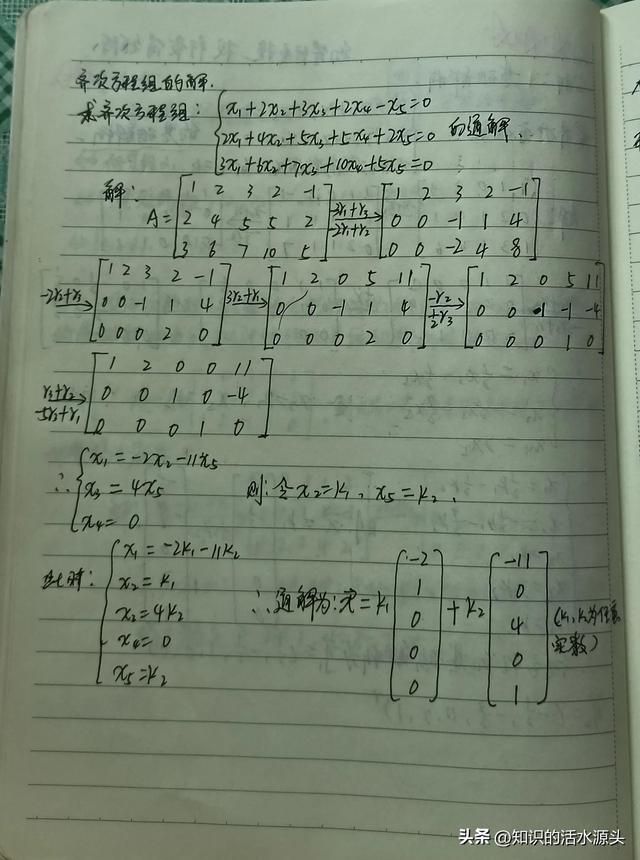 齐次方程组的解.
求齐次方程组:
x₁+2x₂+3x₃+2x₄-x₅=0
2x₁+4x₂+5x₃+5x₄+2x₅=0 的通解.
3x₁+6x₂+7x₃+10x₄+5x₅=0
解: A= [1 2 3 2 -1; 2 4 5 5 2; 3 6 7 10 5] -3r₁+r₃ -2r₁+r₂ → [1 2 3 2 -1; 0 0 -1 1 4; 0 0 -2 4 8]
-2r₂+r₃ → [1 2 3 2 -1; 0 0 -1 1 4; 0 0 0 2 0] 3r₂+r₁ → [1 2 0 5 11; 0 0 -1 1 4; 0 0 0 2 0] -r₂ ½r₃ → [1 2 0 5 11; 0 0 1 -1 -4; 0 0 0 1 0]
r₃+r₂ -5r₃+r₁ → [1 2 0 0 11; 0 0 1 0 -4; 0 0 0 1 0]
x₁=-2x₂-11x₅
∴ x₃=4x₅ 则:令x₂=k₁, x₅=k₂,
x₄=0
x₁=-2k₁-11k₂
此时: x₂=k₁
x₂=4k₂ ∴通解为: x=k₁ [-2; 1; 0; 0; 0] +k₂ [-11; 0; 4; 0; 1] (k₁,k₂为任意实数)
x₄=0
x₅=k₂
头条 @知识的活水源头